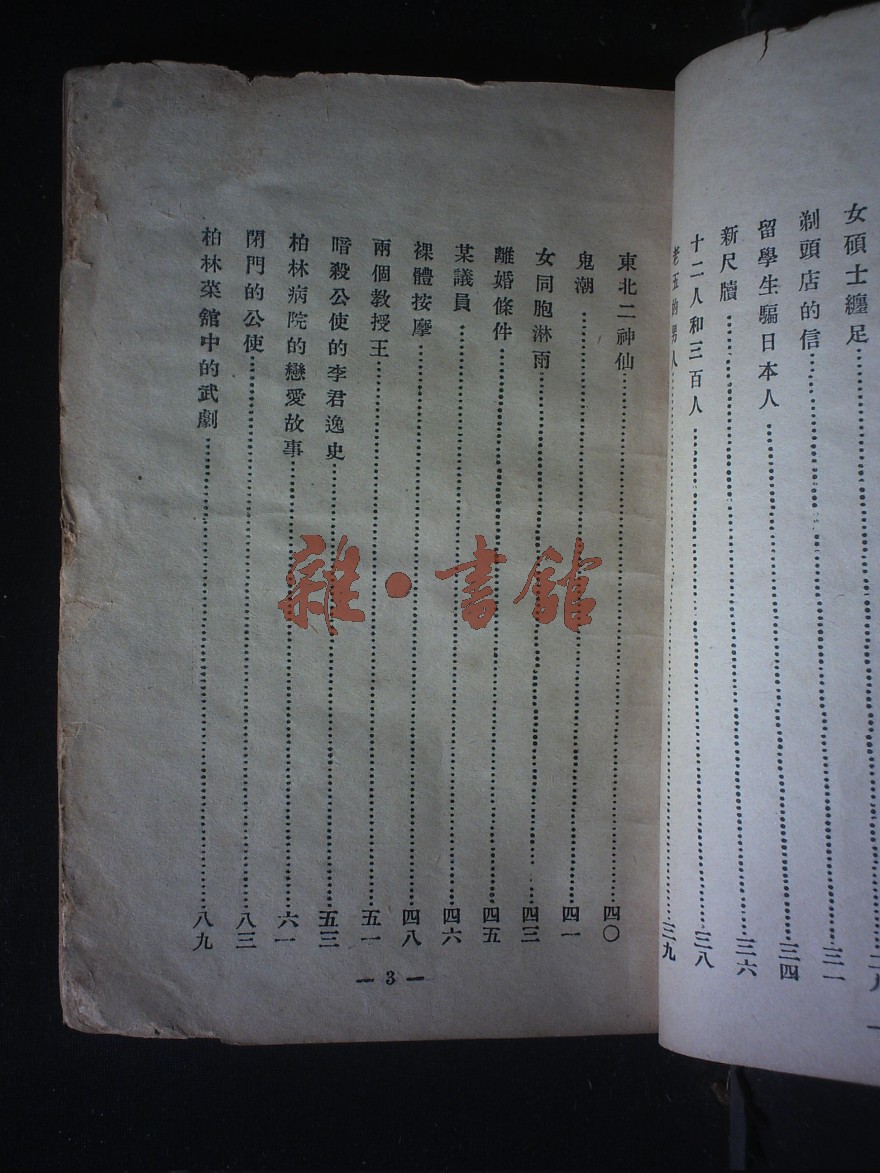 女碩士纏足
剃頭店的信……三一
留學生騙日本人……三四
新尺牘……三六
十二人和三百人……三八
老玉的男人……三九
東北二神仙……四〇
鬼潮……四一
女同胞淋雨……四三
離婚條件……四五
某議員……四六
裸體按摩……四八
兩個教授王……五一
暗殺公使的李君逸史……五三
柏林病院的戀愛故事……六一
閉門的公使……八三
柏林菜館中的武劇……八九
— 3 —
雜·書館